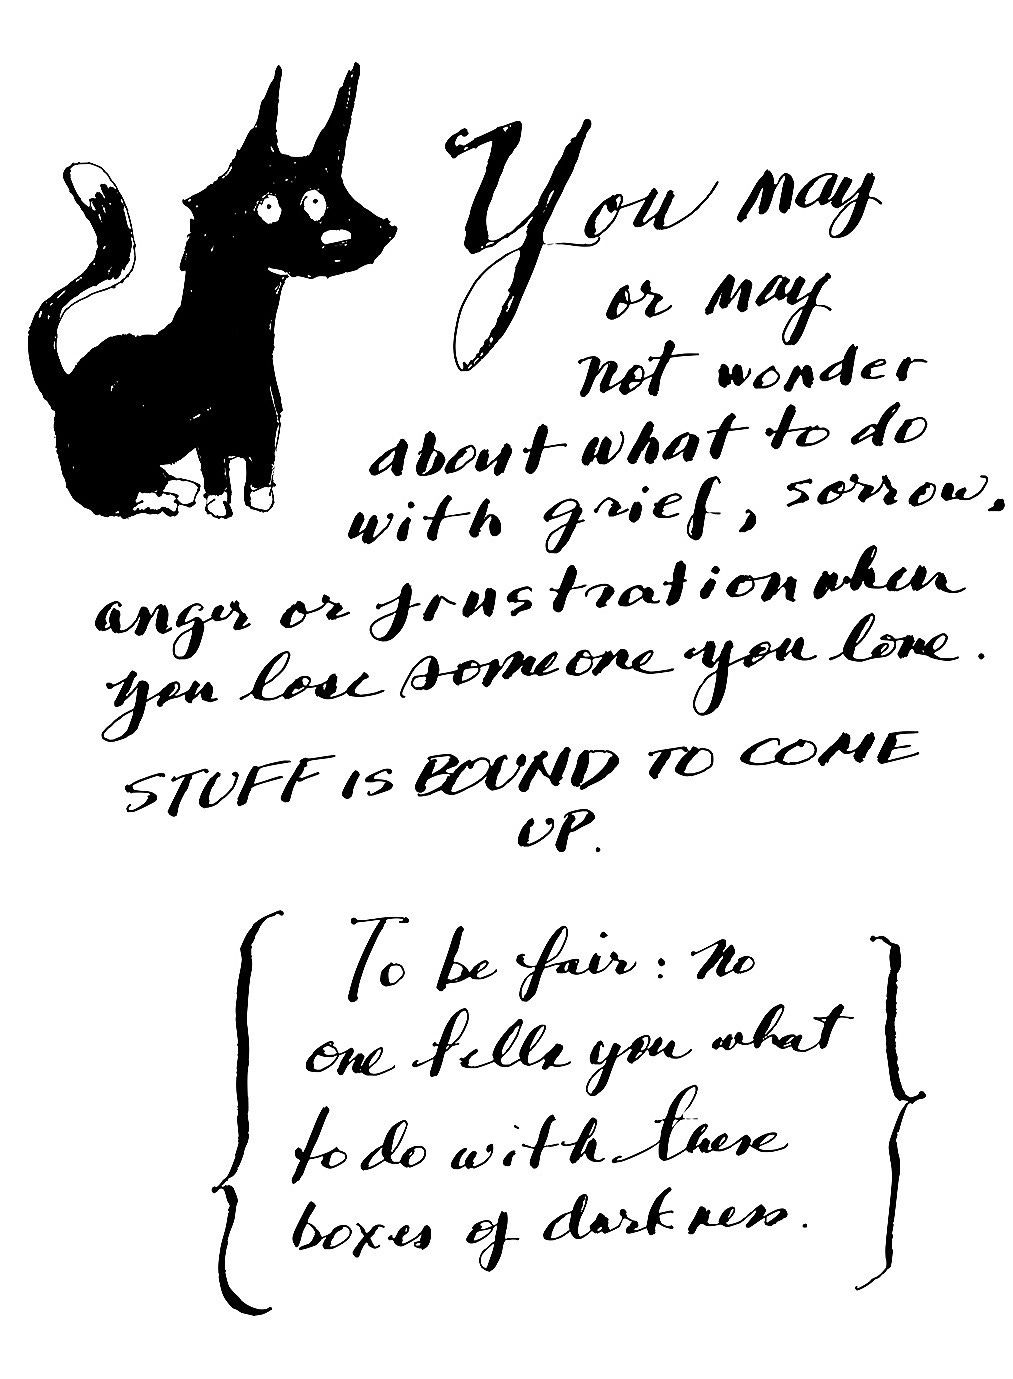 You may
or may
not wonder
about what to do
with grief, sorrow,
anger or frustration when
you lose someone you love.
STUFF IS BOUND TO COME
UP.
To be fair: No
one tells you what
to do with these
boxes of darkness.